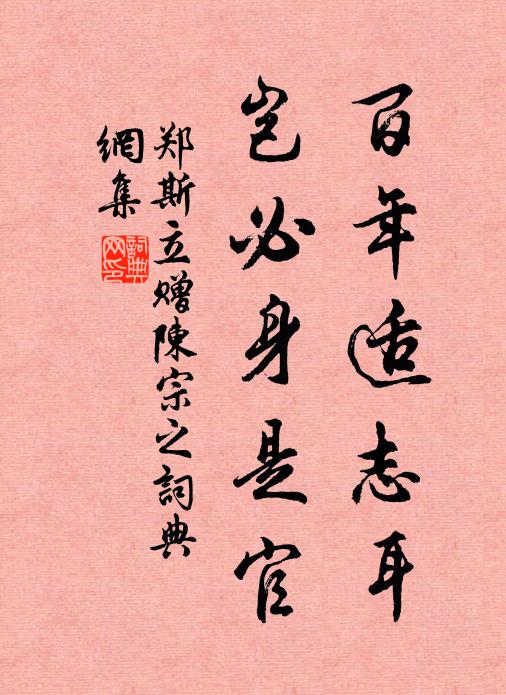 百年适志耳
岂必身是官
郑斯立赠陳宗之詞典
網集
詞典
网印